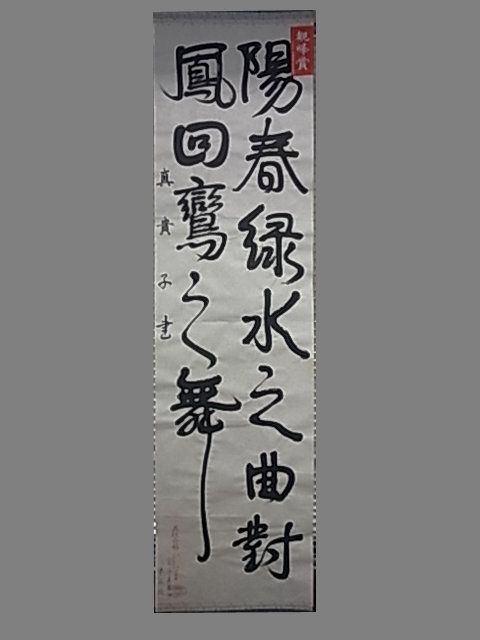 陽春緑水之曲對
鳳回鸞之舞
真貴子書
親峰賞